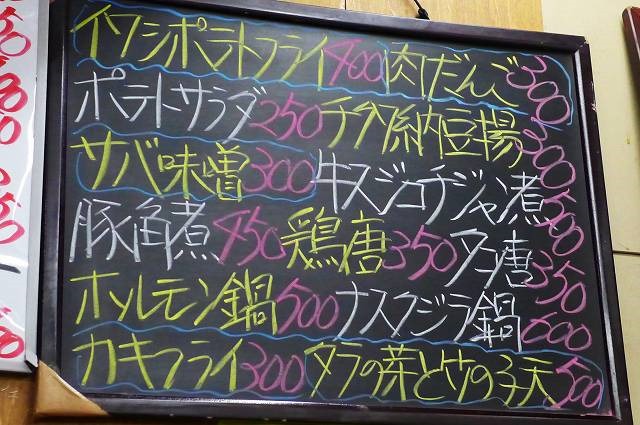 イワシポテトフライ400 肉だんご300
ポテトサラダ250 チーズ納豆揚300
サバ味噌300 牛スジコチジャン煮500
豚角煮450 鶏唐350 タコ唐350
ホルモン鍋500 ナスクジラ鍋600
カキフライ300 タラの芽と竹の子天500